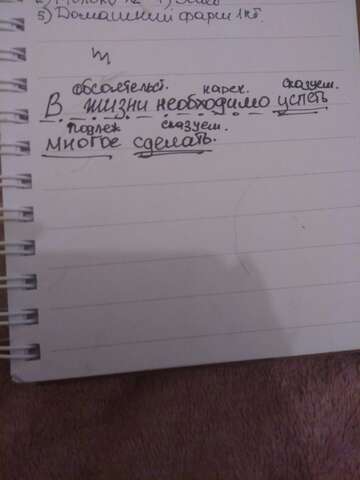 5) Домашний фарш 1кг.
обстоятельст. нареч. сказуем.
В жизни необходимо успеть
подлеж сказуем.
многое сделать.